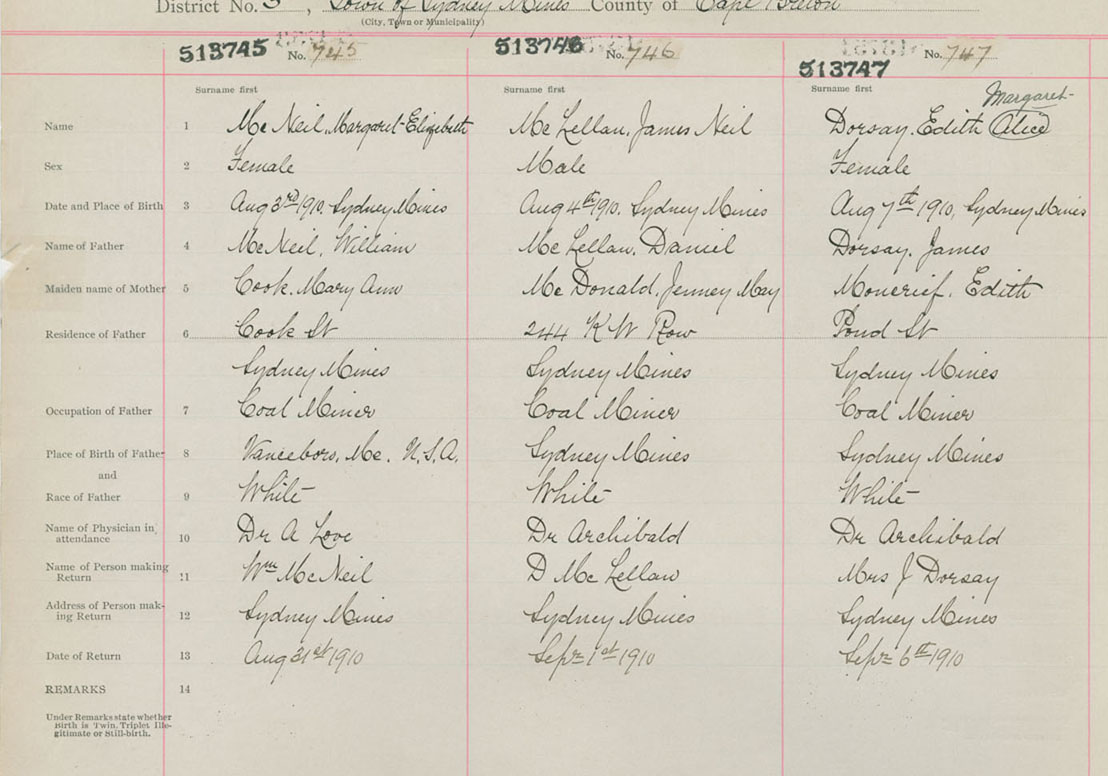 District No. 3, Town of Sydney Mines County of Cape Breton
(City, Town or Municipality)
513745 No. 745 513746 No. 746 513747 No. 747
Surname first Surname first Surname first
Margaret
Name 1 Mc Neil, Margaret Elizebeth Mc Lellan, James Neil Dorsay, Edith Alice
Sex 2 Female Male Female
Date and Place of Birth 3 Aug 3rd 1910, Sydney Mines Aug 4th 1910, Sydney Mines Aug 7th 1910, Sydney Mines
Name of Father 4 Mc Neil, William Mc Lellan, Daniel Dorsay, James
Maiden name of Mother 5 Cook, Mary Ann Mc Donald, Jenney May Moncrief, Edith
Residence of Father 6 Cook St 244 K W Row Pond St
Sydney Mines Sydney Mines Sydney Mines
Occupation of Father 7 Coal Miner Coal Miner Coal Miner
Place of Birth of Father 8 Vanceboro, Me. U.S.A. Sydney Mines Sydney Mines
and
Race of Father 9 White White White
Name of Physician in attendance 10 Dr A Love Dr Archibald Dr Archibald
Name of Person making Return 11 Wm McNeil D Mc Lellan Mrs J Dorsay
Address of Person mak-
ing Return 12 Sydney Mines Sydney Mines Sydney Mines
Date of Return 13 Aug 31st 1910 Sepr 1st 1910 Sepr 6th 1910
REMARKS 14
Under Remarks state whether
Birth is Twin, Triplet Ille-
gitimate or Still-birth.